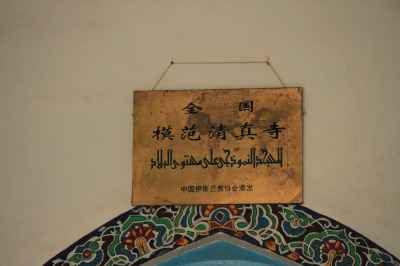 全国
模范清真寺
المسجد النموذجي على مستوى البلاد
中国伊斯兰教协会颁发